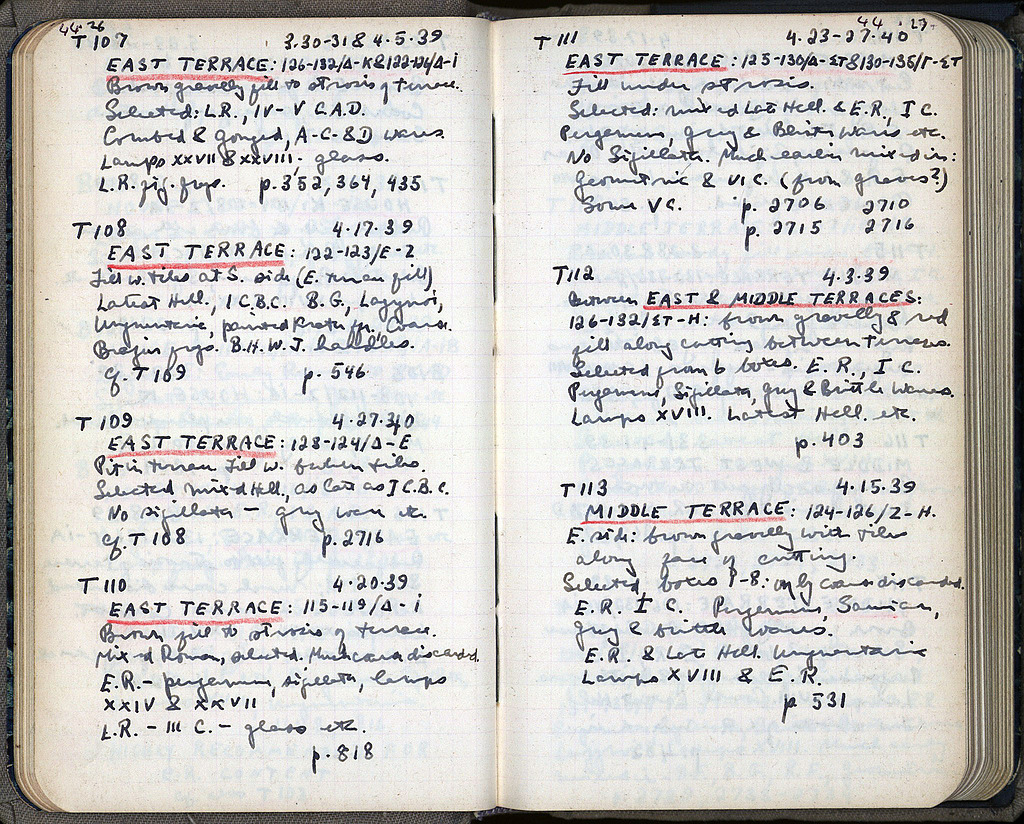 44.26
T 107 3.30-31 & 4.5.39
EAST TERRACE: 126-132/Δ-K & 122-126/Δ-i
Brown gravelly fill to strosis of terrace.
Selected: L.R., IV-V C.A.D.
Combed & gouged, A-C-&D wares
Lamps XXVII & XXVIII, glass.
L.R. fig. frgs. p. 352, 364, 435
T 108 4.17.39
EAST TERRACE: 122-123/E-Z
Fill w. tiles at S. side (E. terrace fill)
Latest Hell., I C.B.C. B.G., Lagynoi,
Unguentaria, painted Krater fr., Coarse.
Brazier frgs. B.H.W.J. handles.
Cf. T 109 p. 546
T 109 4.27.40
EAST TERRACE: 123-124/Δ-E
Pit in terrace. Fill w. broken tiles.
Selected mixed Hell., as late as I C.B.C.
No sigillata - grey ware etc.
Cf. T 108 p. 2716
T 110 4.20.39
EAST TERRACE: 115-119/Δ-i
Brown fill to strosis of terrace.
Mixed Roman, selected. Much coarse discarded.
E.R. - pergamene, sigillata, lamps
XXIV & XXVII
L.R. - III C. - glass etc.
p. 818
44.27
T 111 4.23-27.40
EAST TERRACE: 125-130/Δ-ΣΤ & 130-135/Γ-ΣΤ
Fill under strosis.
Selected: mixed Late Hell. & E.R., I C.
Pergamene, grey & Brittle wares etc.
No Sigillata. Much earlier mixed in:
Geometric & VI C. (from graves?)
Some V C. p. 2706 2710
p. 2715 2716
T 112 4.3.39
Between EAST & MIDDLE TERRACES:
126-132/ΣΤ-H: brown gravelly & red
fill along cutting between terraces.
Selected from 6 boxes. E.R., I C.
Pergamene, Sigillata, Grey & Brittle Wares.
Lamps XVIII. Latest Hell. etc.
p. 403
T 113 4.15.39
MIDDLE TERRACE: 124-126/Z-H.
E. side: brown gravelly with tiles
along face of cutting.
Selected, boxes 1-8: only coarse discarded.
E.R. I C. Pergamene, Samian,
Grey & brittle wares.
E.R. & Late Hell. Unguentaria
Lamps XVIII & E.R.
p. 531